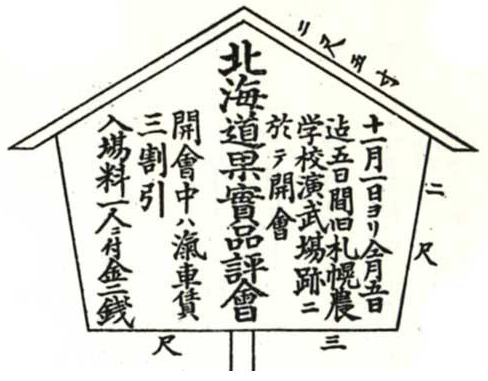 二尺五寸
十一月一日ヨリ仝月五日
迠五日間旧札幌農
学校演武場跡ニ
於テ開會
北海道果實品評會
開會中ハ滊車賃
三割引
入場料一人ニ付金二錢
二尺
三尺